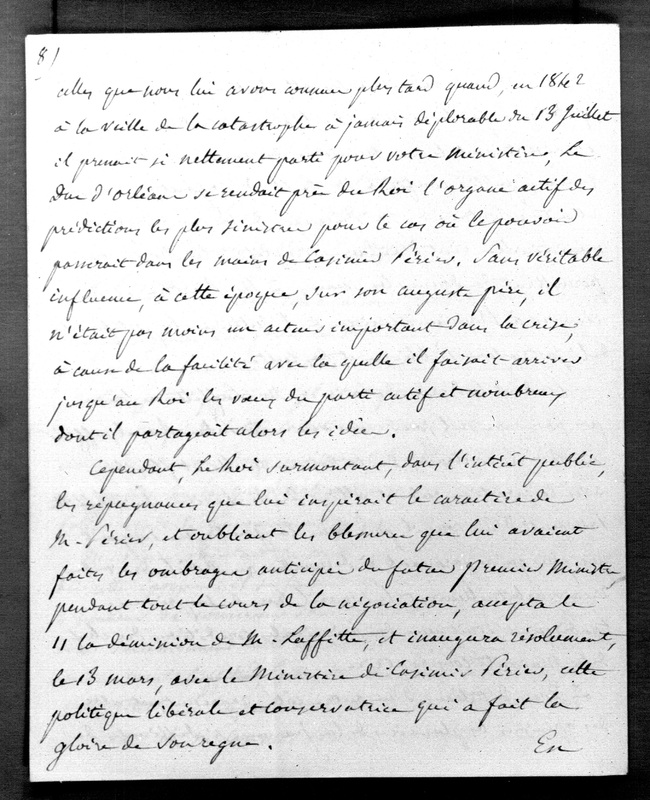 8)
celles que nous lui avons connues plus tard quand, en 1842
à la veille de la catastrophe à jamais déplorable du 13 Juillet
il prenait si nettement parti pour votre Ministère, Le
Duc d'Orléans se rendait près du Roi l'organe actif des
prédictions les plus sinistres pour le cas où le pouvoir
passerait dans les mains de Casimir Périer. Sans véritable
influence, à cette époque, sur son auguste père, il
n'était pas moins un acteur important dans la crise,
à cause de la facilité avec laquelle il faisait arriver
jusqu'au Roi les vœux du parti actif et nombreux
dont il partageait alors les idées.
Cependant, Le Roi surmontant, dans l'intérêt public,
les répugnances que lui inspirait le caractère de
M. Périer, et oubliant les blessures que lui avaient
faites les ombrages anticipés du futur premier Ministre
pendant tout le cours de la négociation, accepta le
11 la démission de M. Laffitte, et inaugura résolument,
le 13 mars, avec le Ministère de Casimir Périer, cette
politique libérale et conservatrice qui a fait la
gloire de son règne.
En